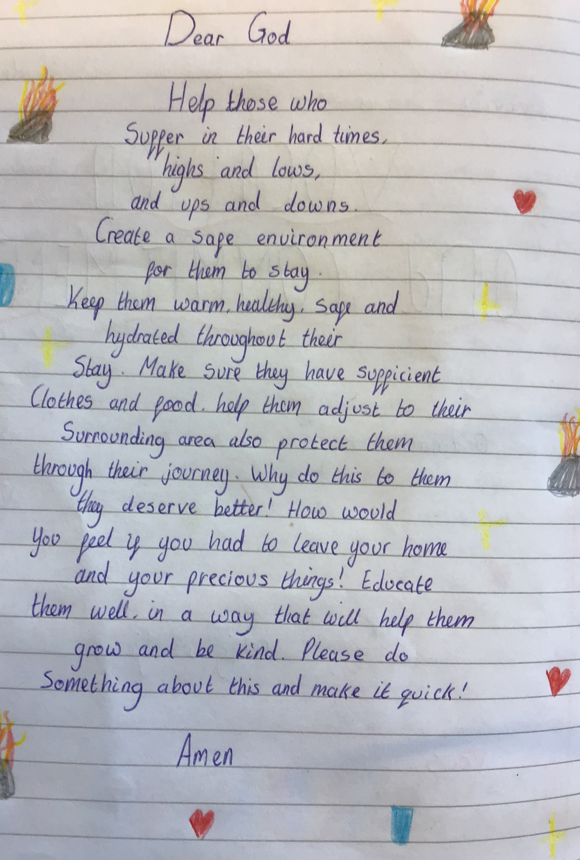 Dear God
Help those who
Suffer in their hard times,
highs and lows,
and ups and downs.
Create a safe environment
for them to stay.
Keep them warm, healthy, safe and
hydrated throughout their
Stay. Make sure they have sufficient
Clothes and food. help them adjust to their
Surrounding area also protect them
through their journey. Why do this to them
they deserve better! How would
You feel if you had to leave your home
and your precious things! Educate
them well, in a way that will help them
grow and be kind. Please do
Something about this and make it quick!
Amen